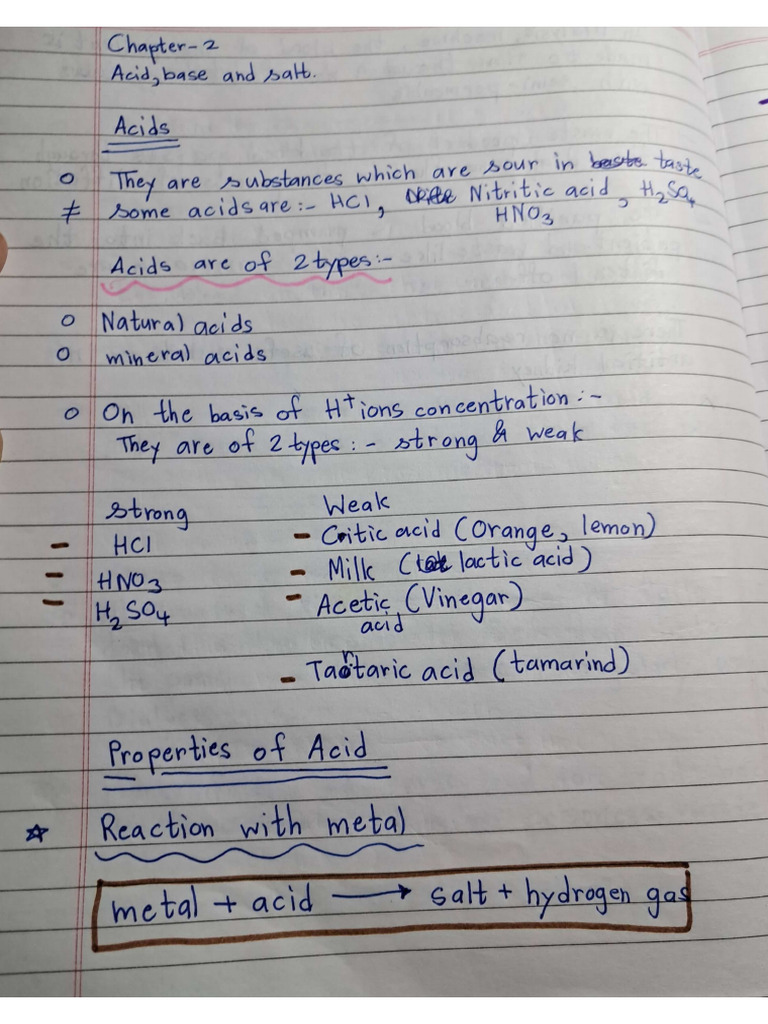 Chapter-2
Acid, base and salt.
Acids
o They are substances which are sour in taste
≠ some acids are:- HCl, Nitritic acid, H₂SO₄
HNO₃
Acids are of 2 types:-
o Natural acids
o mineral acids
o On the basis of H⁺ ions concentration:-
They are of 2 types:- strong & weak
strong Weak
- HCl - Citic acid (Orange, lemon)
- HNO₃ - Milk (lactic acid)
- H₂SO₄ - Acetic (Vinegar)
acid
- Tartaric acid (tamarind)
Properties of Acid
☆ Reaction with metal
metal + acid ⟶ salt + hydrogen gas